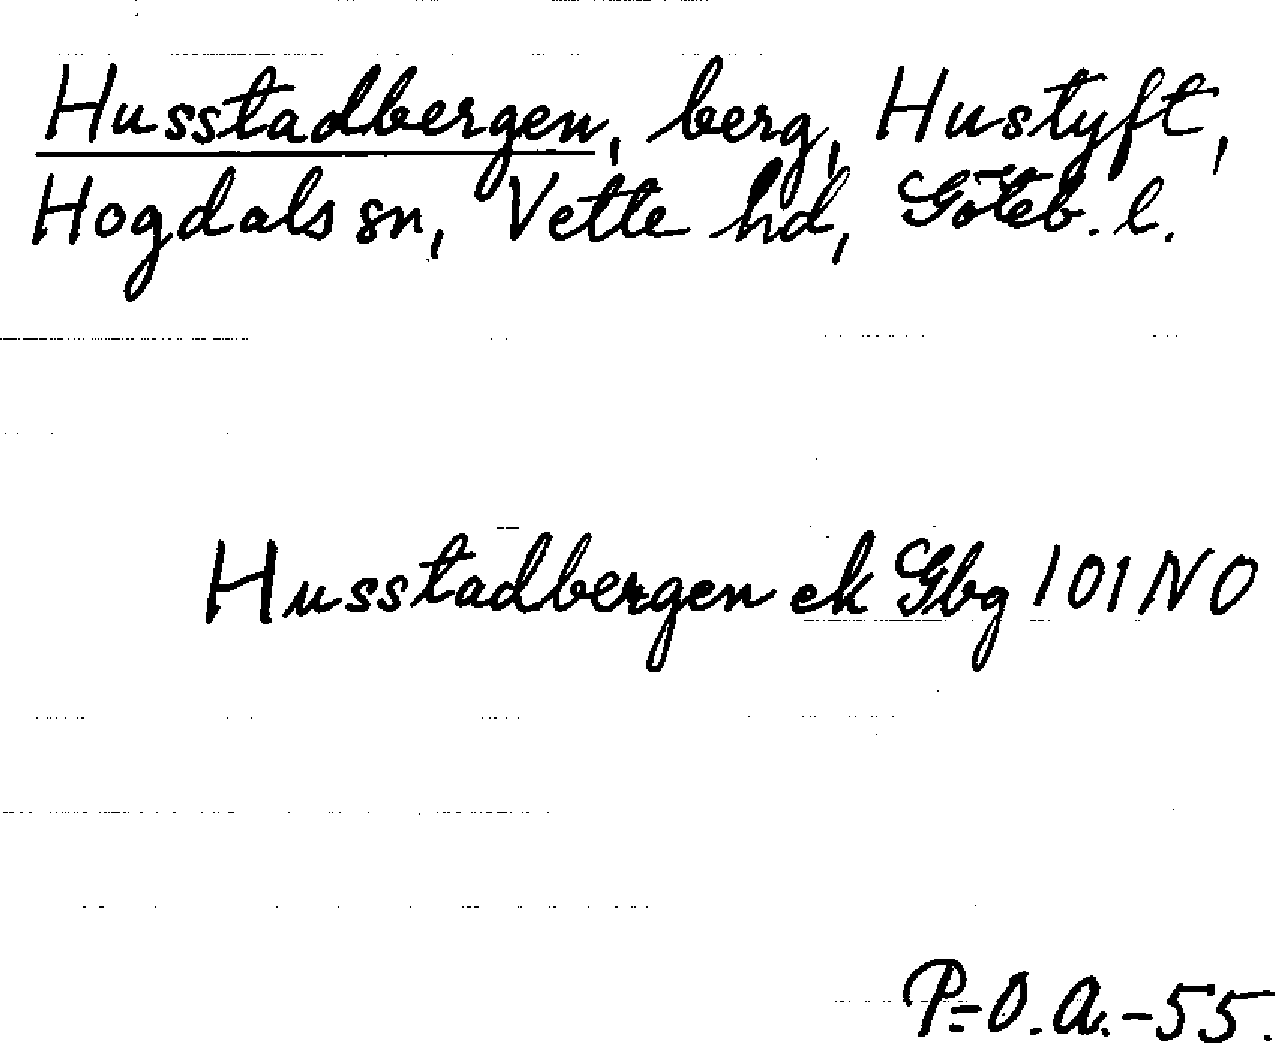 Husstadbergen, berg, Hustyft,
Hogdals sn, Vette hd, Göteb. l.
Husstadbergen ek Gbg 101 NO
P.-O. A. -55.